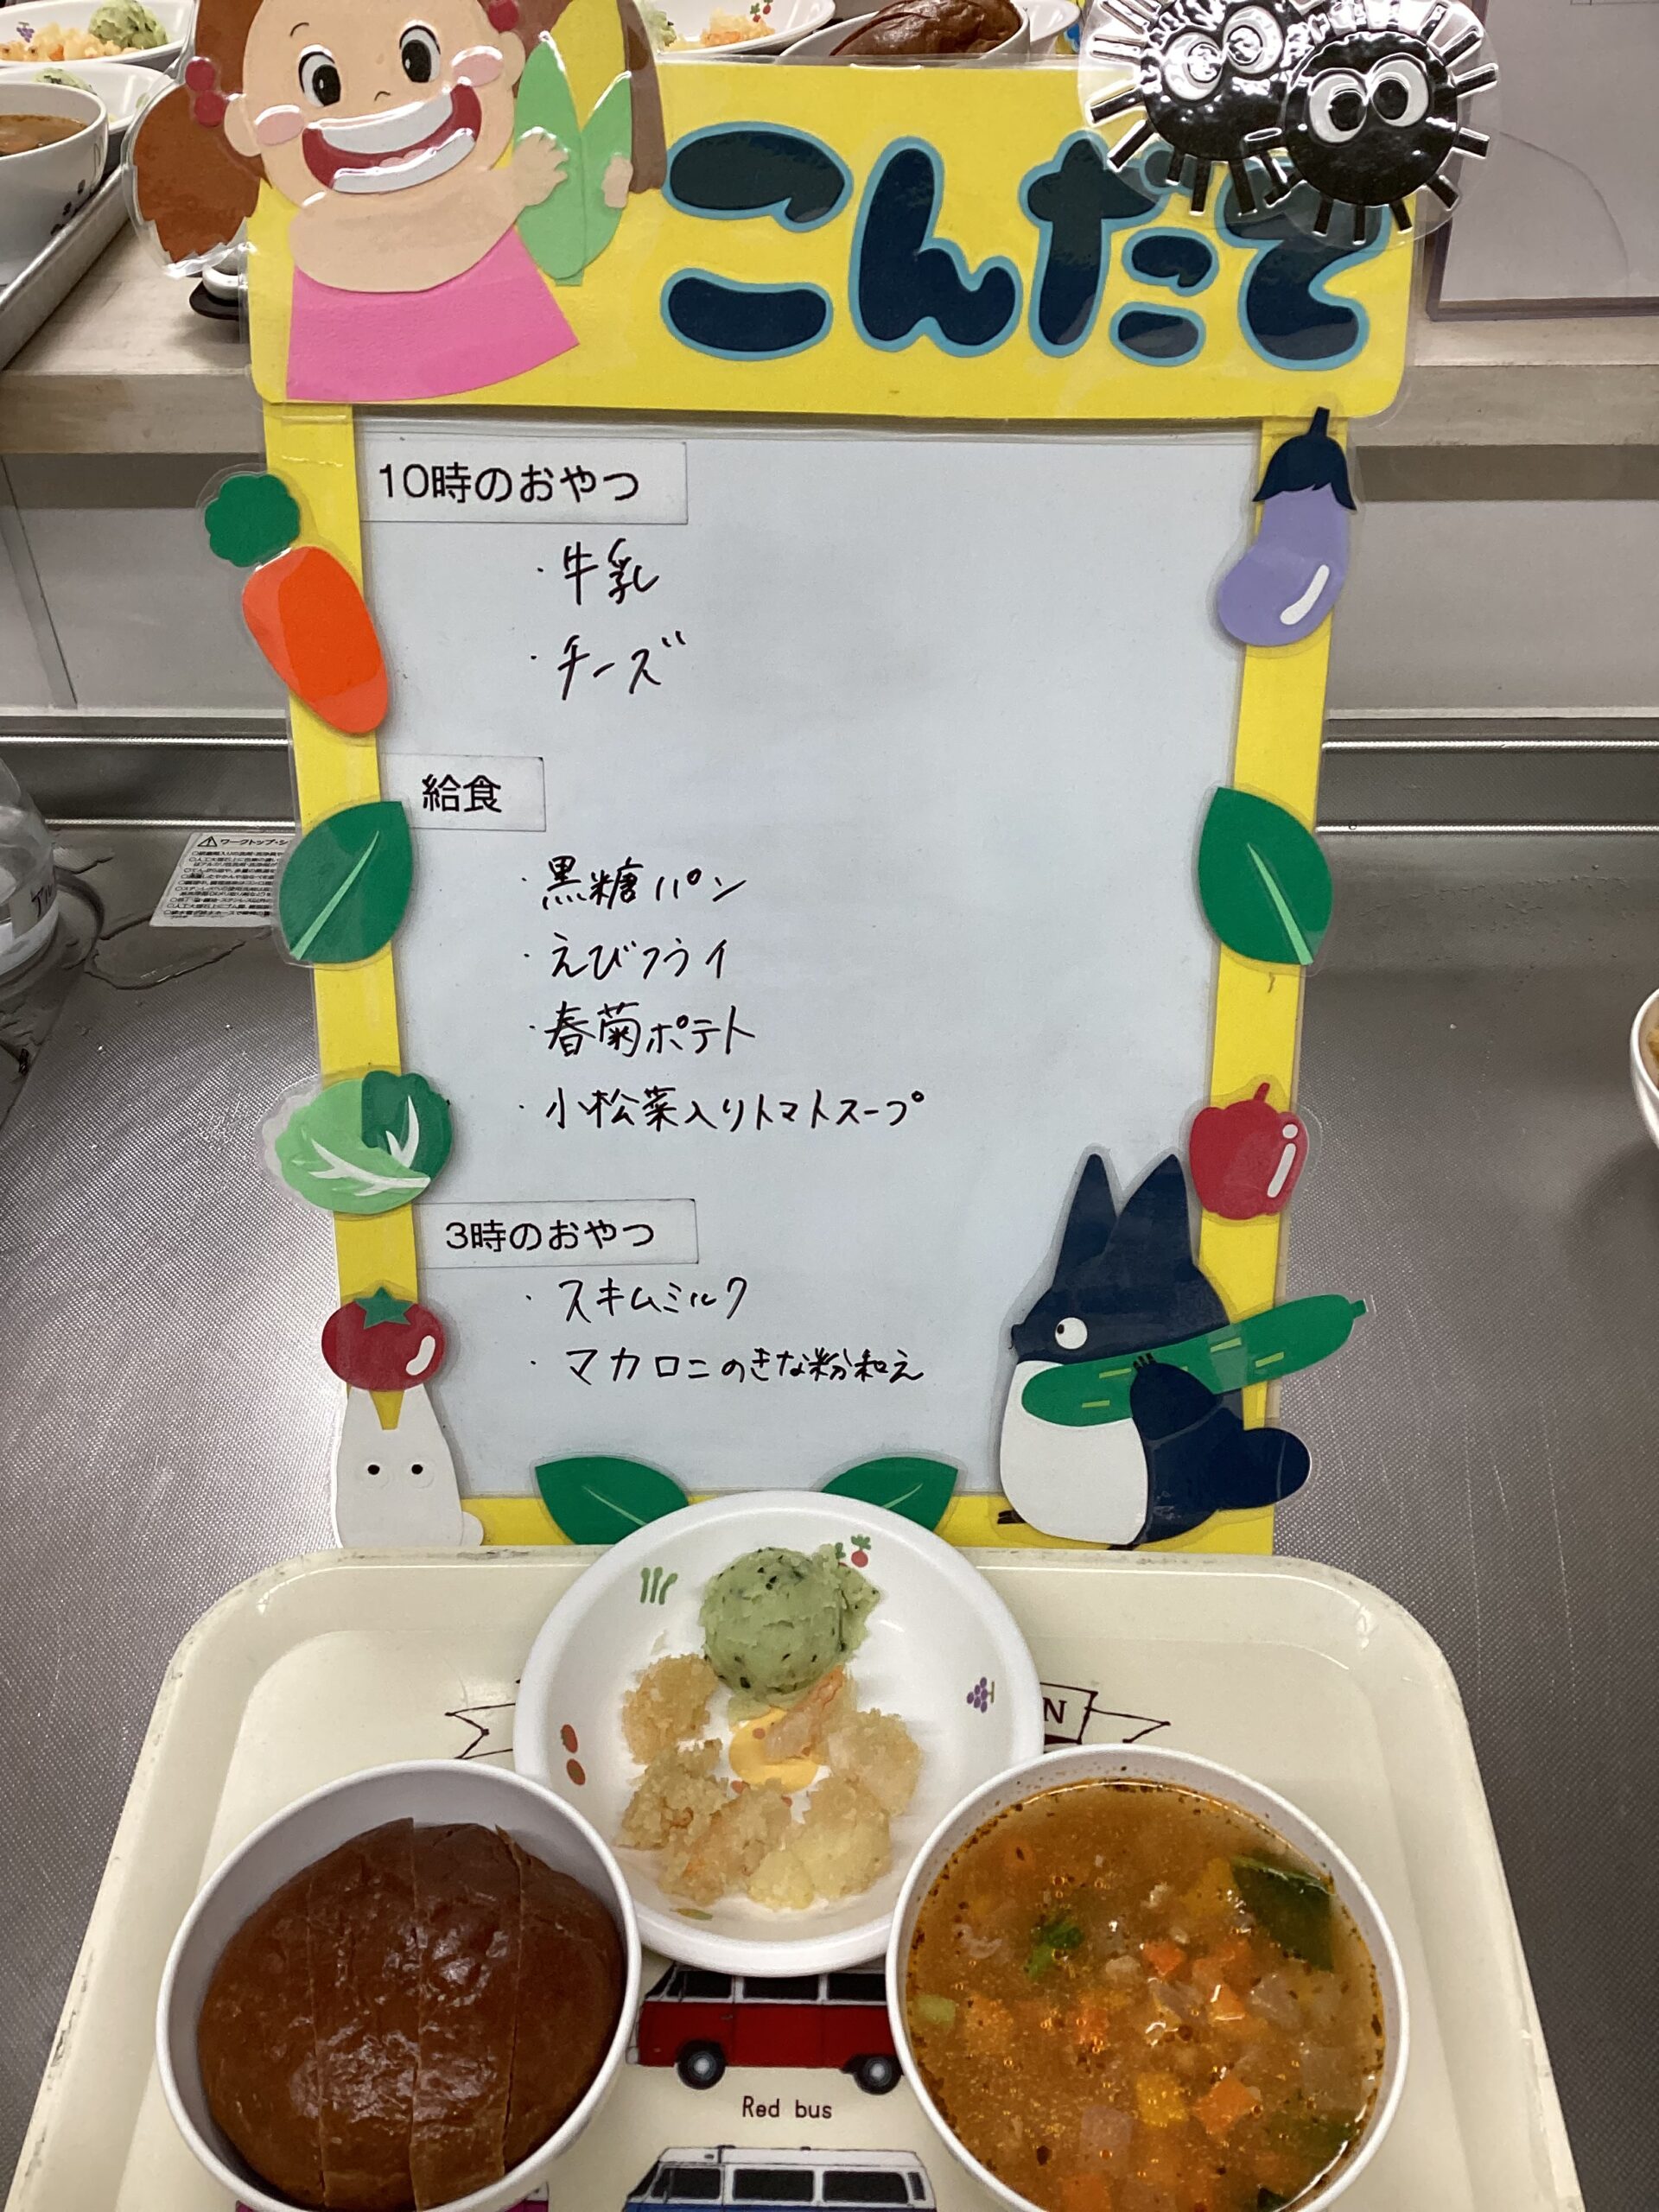 こんだて
10時のおやつ
・牛乳
・チーズ
給食
・黒糖パン
・えびフライ
・春菊ポテト
・小松菜入りトマトスープ
3時のおやつ
・スキムミルク
・マカロニのきな粉和え
N
Red bus